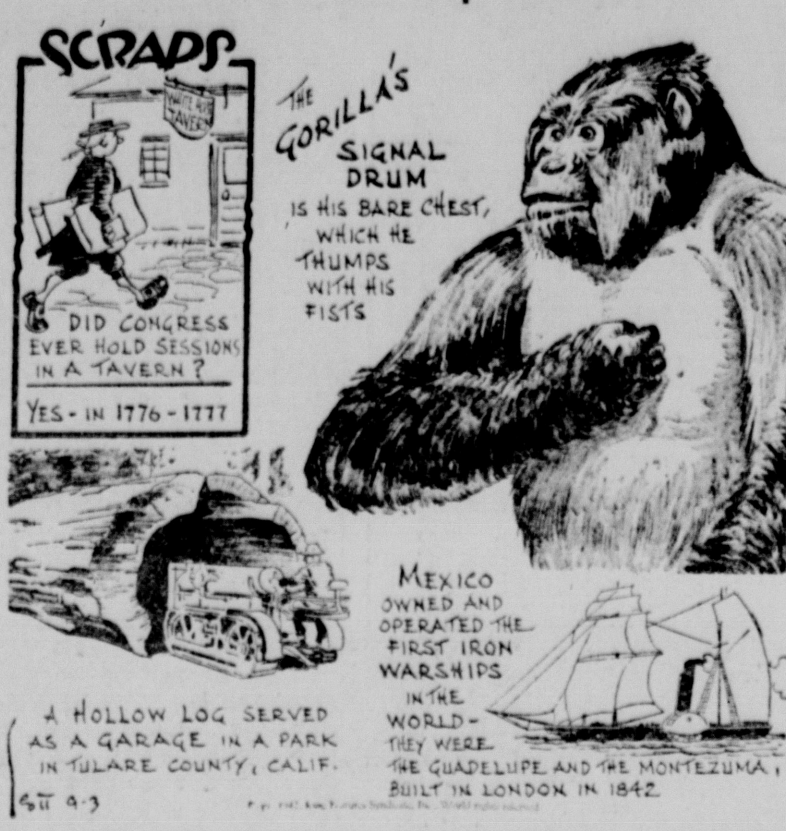 SCRAPS
WHITE HORSE
TAVERN
DID CONGRESS
EVER HOLD SESSIONS
IN A TAVERN?
YES - IN 1776 - 1777
THE
GORILLA'S
SIGNAL
DRUM
IS HIS BARE CHEST,
WHICH HE
THUMPS
WITH HIS
FISTS
A HOLLOW LOG SERVED
AS A GARAGE IN A PARK
IN TULARE COUNTY, CALIF.
9-3
MEXICO
OWNED AND
OPERATED THE
FIRST IRON
WARSHIPS
IN THE
WORLD -
THEY WERE
THE GUADELUPE AND THE MONTEZUMA,
BUILT IN LONDON IN 1842